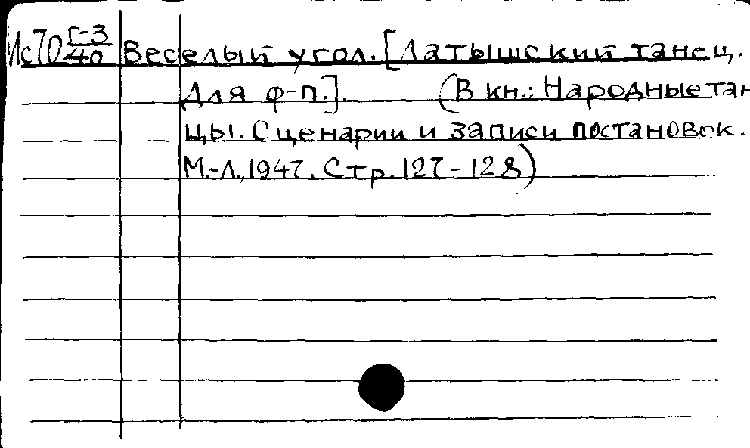 Ис70 Г-3/40 Веселый угол. [Латышский танец.
Для ф-п.]. (В кн.: Народные тан
цы. Сценарии и записи постановок.
М.-Л., 1947. Стр. 127-128)